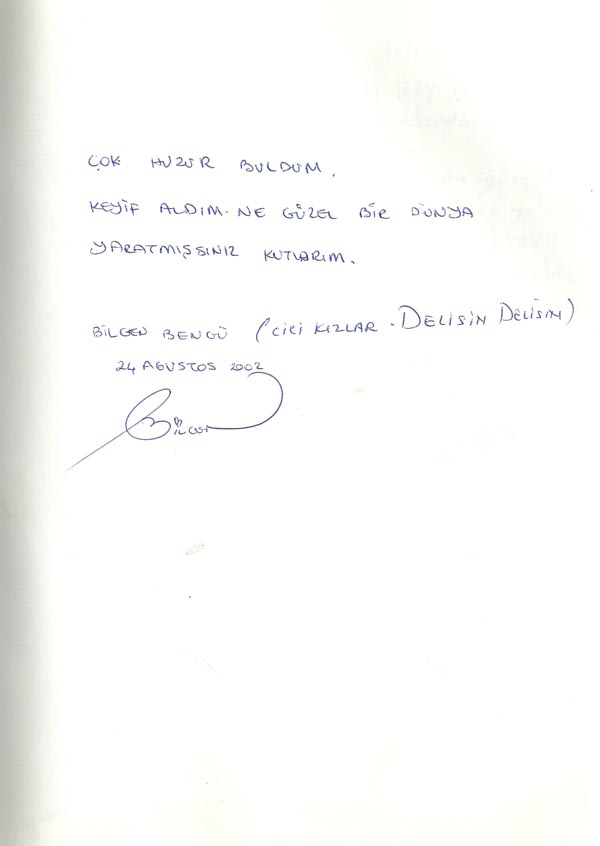 ÇOK HUZUR BULDUM.
KEYİF ALDIM. NE GÜZEL BİR DÜNYA
YARATMIŞSINIZ KUTLARIM.
BİLGEN BENGÜ (CİCİ KIZLAR - DELİSİN DELİSİN)
24 AĞUSTOS 2002
Bilgen